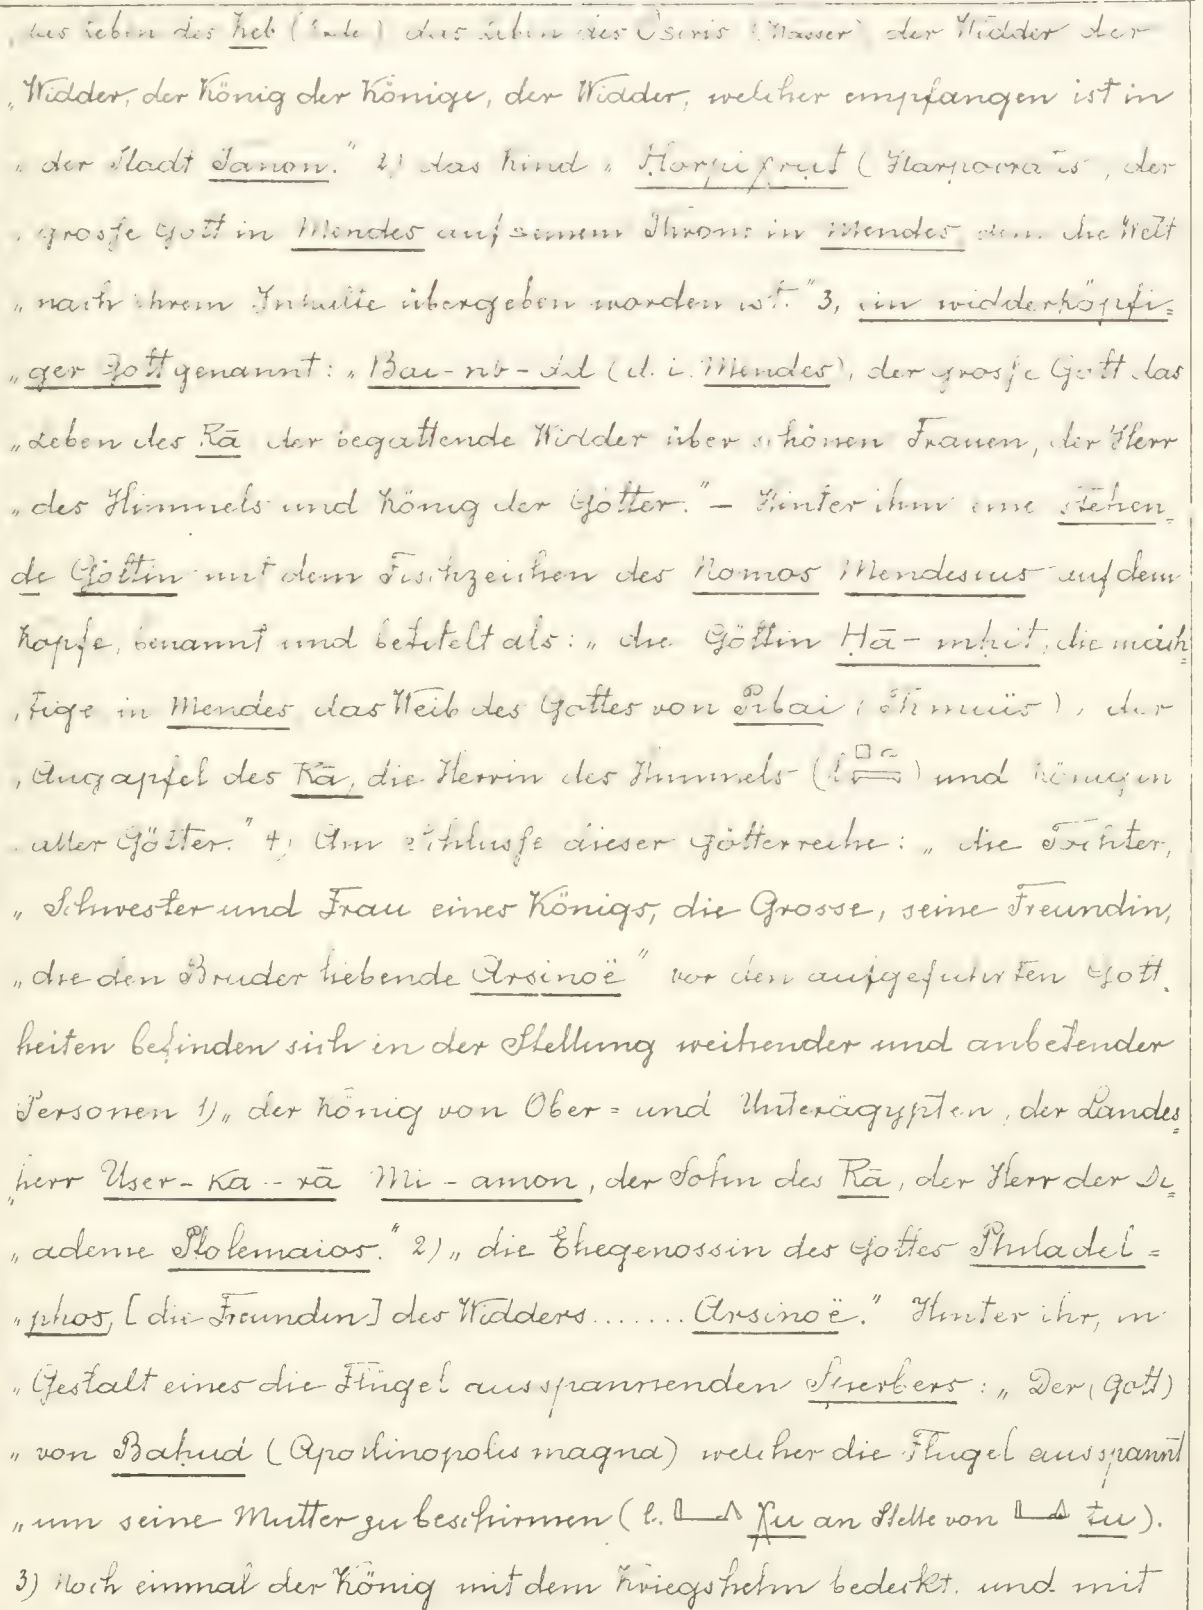 „das Leben des Keb (Erde) das Leben des Osiris (Wasser) der Widder der
„Widder, der König der Könige, der Widder, welcher empfangen ist in
„der Stadt Tanon." 2) das Kind „Horpiχrut (Harpocrates, der
„grosse Gott in Mendes auf seinem Throne in Mendes, dem die Welt
„nach ihrem Inhalte übergeben worden ist." 3, ein widderköpfi=
„ger Gott genannt: „Bai-nb-dd (d. i. Mendes), der grosse Gott das
„Leben des Rā der begattende Widder über schönen Frauen, der Herr
„des Himmels und König der Götter." – Hinter ihm eine stehen=
de Göttin mit dem Fischzeichen des Nomos Mendesius auf dem
Kopfe, benannt und betitelt als: „die Göttin Hā-mhit, die mäch
„tige in Mendes das Weib des Gottes von Pibai (Thmuïs), der
„Augapfel des Rā, die Herrin des Himmels (l.) und Königin
aller Götter." 4) Am Schlusse dieser Götterreihe: „die Tochter,
„Schwester und Frau eines Königs, die Grosse, seine Freundin,
„die den Bruder liebende Arsinoë" vor den aufgeführten Gott=
heiten befinden sich in der Stellung weihender und anbetender
Personen 1) „der König von Ober= und Unterägypten, der Landes=
„herr User-ka-rā Mi-amon, der Sohn des Rā, der Herr der Di=
„ademe Ptolemaios." 2) „die Ehegenossin des Gottes Philadel=
„phos, [die Freundin] des Widders ....... Arsinoë." Hinter ihr, in
„Gestalt eines die Flügel ausspannenden Sperbers: „Der (Gott)
„von Bahud (Apollinopolis magna) welcher die Flügel ausspannt
„um seine Mutter zu beschirmen (l. χu an Stelle von tu).
3) Noch einmal der König mit dem Kriegshelm bedeckt und mit